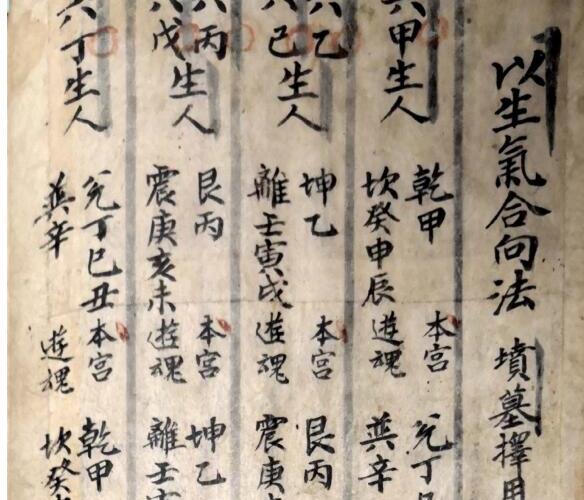 以生氣合向法 墳墓擇用
六甲生人
乾甲 本宮 兌丁
坎癸申辰 巽辛
六乙
六己
生人
坤乙 本宮 艮丙
離壬寅戌 遊魂 震庚
六丙
六戊
生人
艮丙 本宮 坤乙
震庚亥未 遊魂 離壬
六丁生人
兌丁巳丑 本宮 乾甲
巽辛 遊魂 坎癸